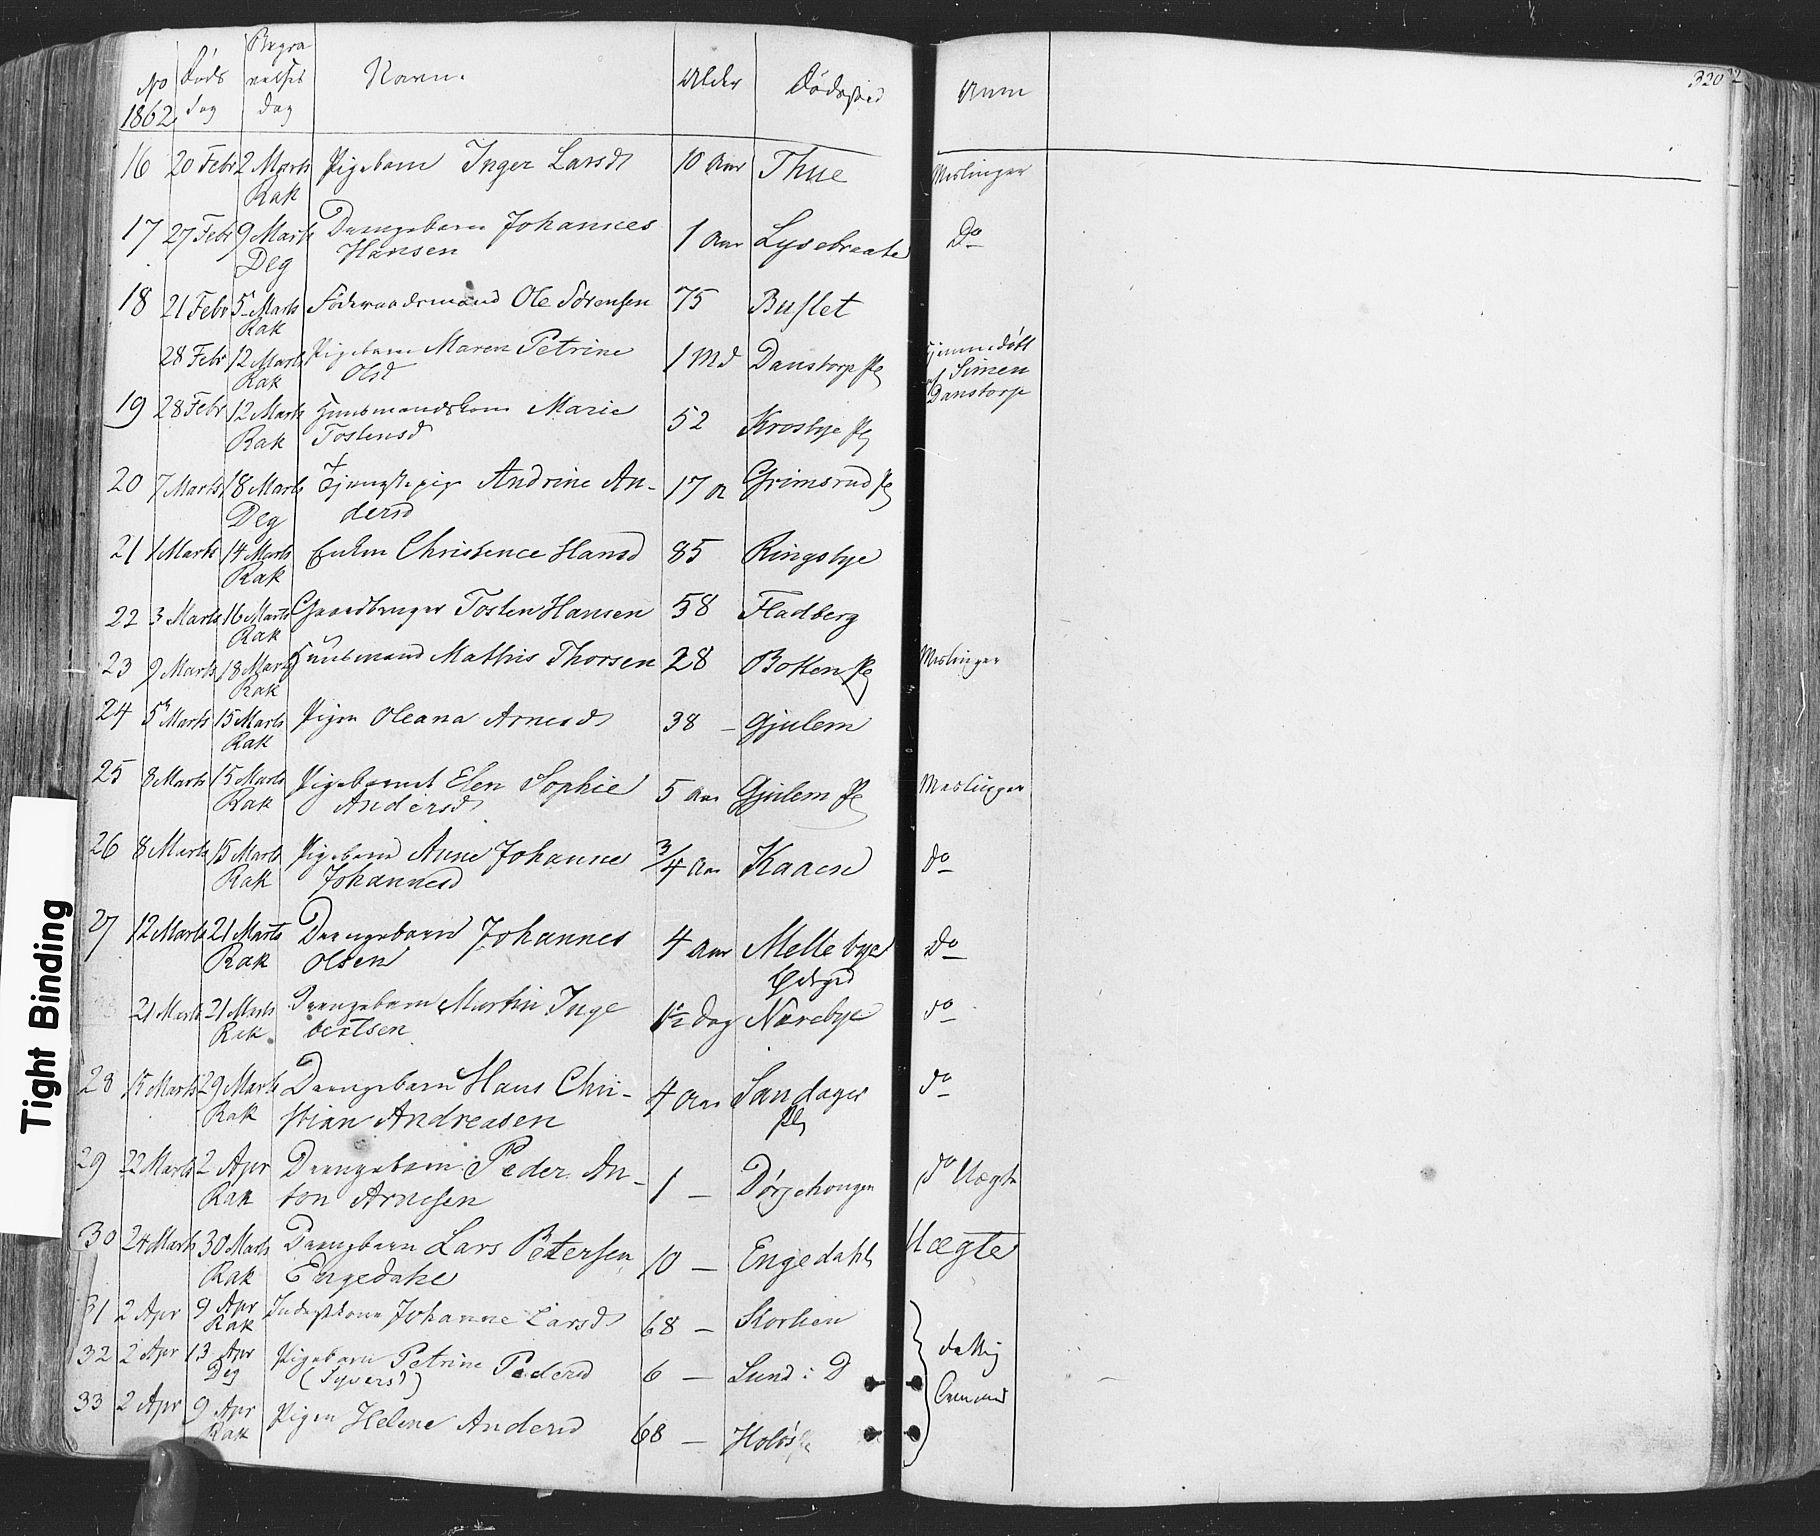 No 1862 | Døds dag | Begravelses dag | Navn. | Alder | Dødssted | Anm
320
16 | 20 Febr | 2 Marts Rak | Pigebarn Inger Larsd | 10 Aar | Thue | Meslinger
17 | 27 Febr | 9 Marts Deg | Drengebarn Johannes Hansen | 1 Aar | Lysebraate | Do
18 | 21 Febr | 5 Marts Rak | Føderaadsmand Ole Sørensen | 75 | Buslet
28 Febr | 12 Marts Rak | Pigebarn Maren Petrine Olsd | 1 Md | Danstorp Pl | hjemmedøbt af Simen Danstorp
19 | 28 Febr | 12 Marts Rak | Huusmandskone Marie Tostensd | 52 | Krosbye Pl
20 | 7 Marts | 18 Marts Deg | Tjenestepige Andrine Andersd | 17 A | Grimsrud Pl
21 | 1 Marts | 14 Marts Rak | Enken Christence Hansd | 85 | Ringsbye
22 | 3 Marts | 16 Marts Rak | Gaardbruger Tosten Hansen | 58 | Fladberg
23 | 9 Marts | 18 Marts Rak | Huusmand Mathis Thorsen | 28 | Botten Pl | Meslinger
24 | 5 Marts | 15 Marts Rak | Pigen Oleana Arnesd | 38 – | Gjulem
25 | 8 Marts | 15 Marts Rak | Pigebarnet Elen Sophie Andersd | 5 Aar | Gjulem Pl | Meslinger
26 | 8 Marts | 15 Marts Rak | Pigebarn Anne Johanne Johannesd | 3/4 Aar | Kaaen | do
27 | 12 Marts | 21 Marts Rak | Drengebarn Johannes Olsen | 4 Aar | Mellebye | Do
21 Marts | 21 Marts Rak | Drengebarn Martin Ingebertsen | 1½ Dag | Narebye | do
28 | 15 Marts | 29 Marts Rak | Drengebarn Hans Christian Andreasen | 4 Aar | Sandager Pl | do
29 | 22 Marts | 2 Apr Rak | Drengebarn Peder Anton Arnesen | 1 – | Dørjehougen | do Kægte
30 | 24 Marts | 30 Marts Rak | Drengbarn Lars Petersen Engedahl | 10 – | Engedahl | Kægte
31 | 2 Apr | 9 Apr Rak | Inderstkone Johanne Larsd | 68 – | Storlien
32 | 2 Apr | 13 Apr Deg | Pigebarn Petrine Pedersd (Syversd) | 6 – | Lund: D
33 | 2 Apr | 9 Apr Rak | Pigen Helene Andersd | 68 –
Tight Binding